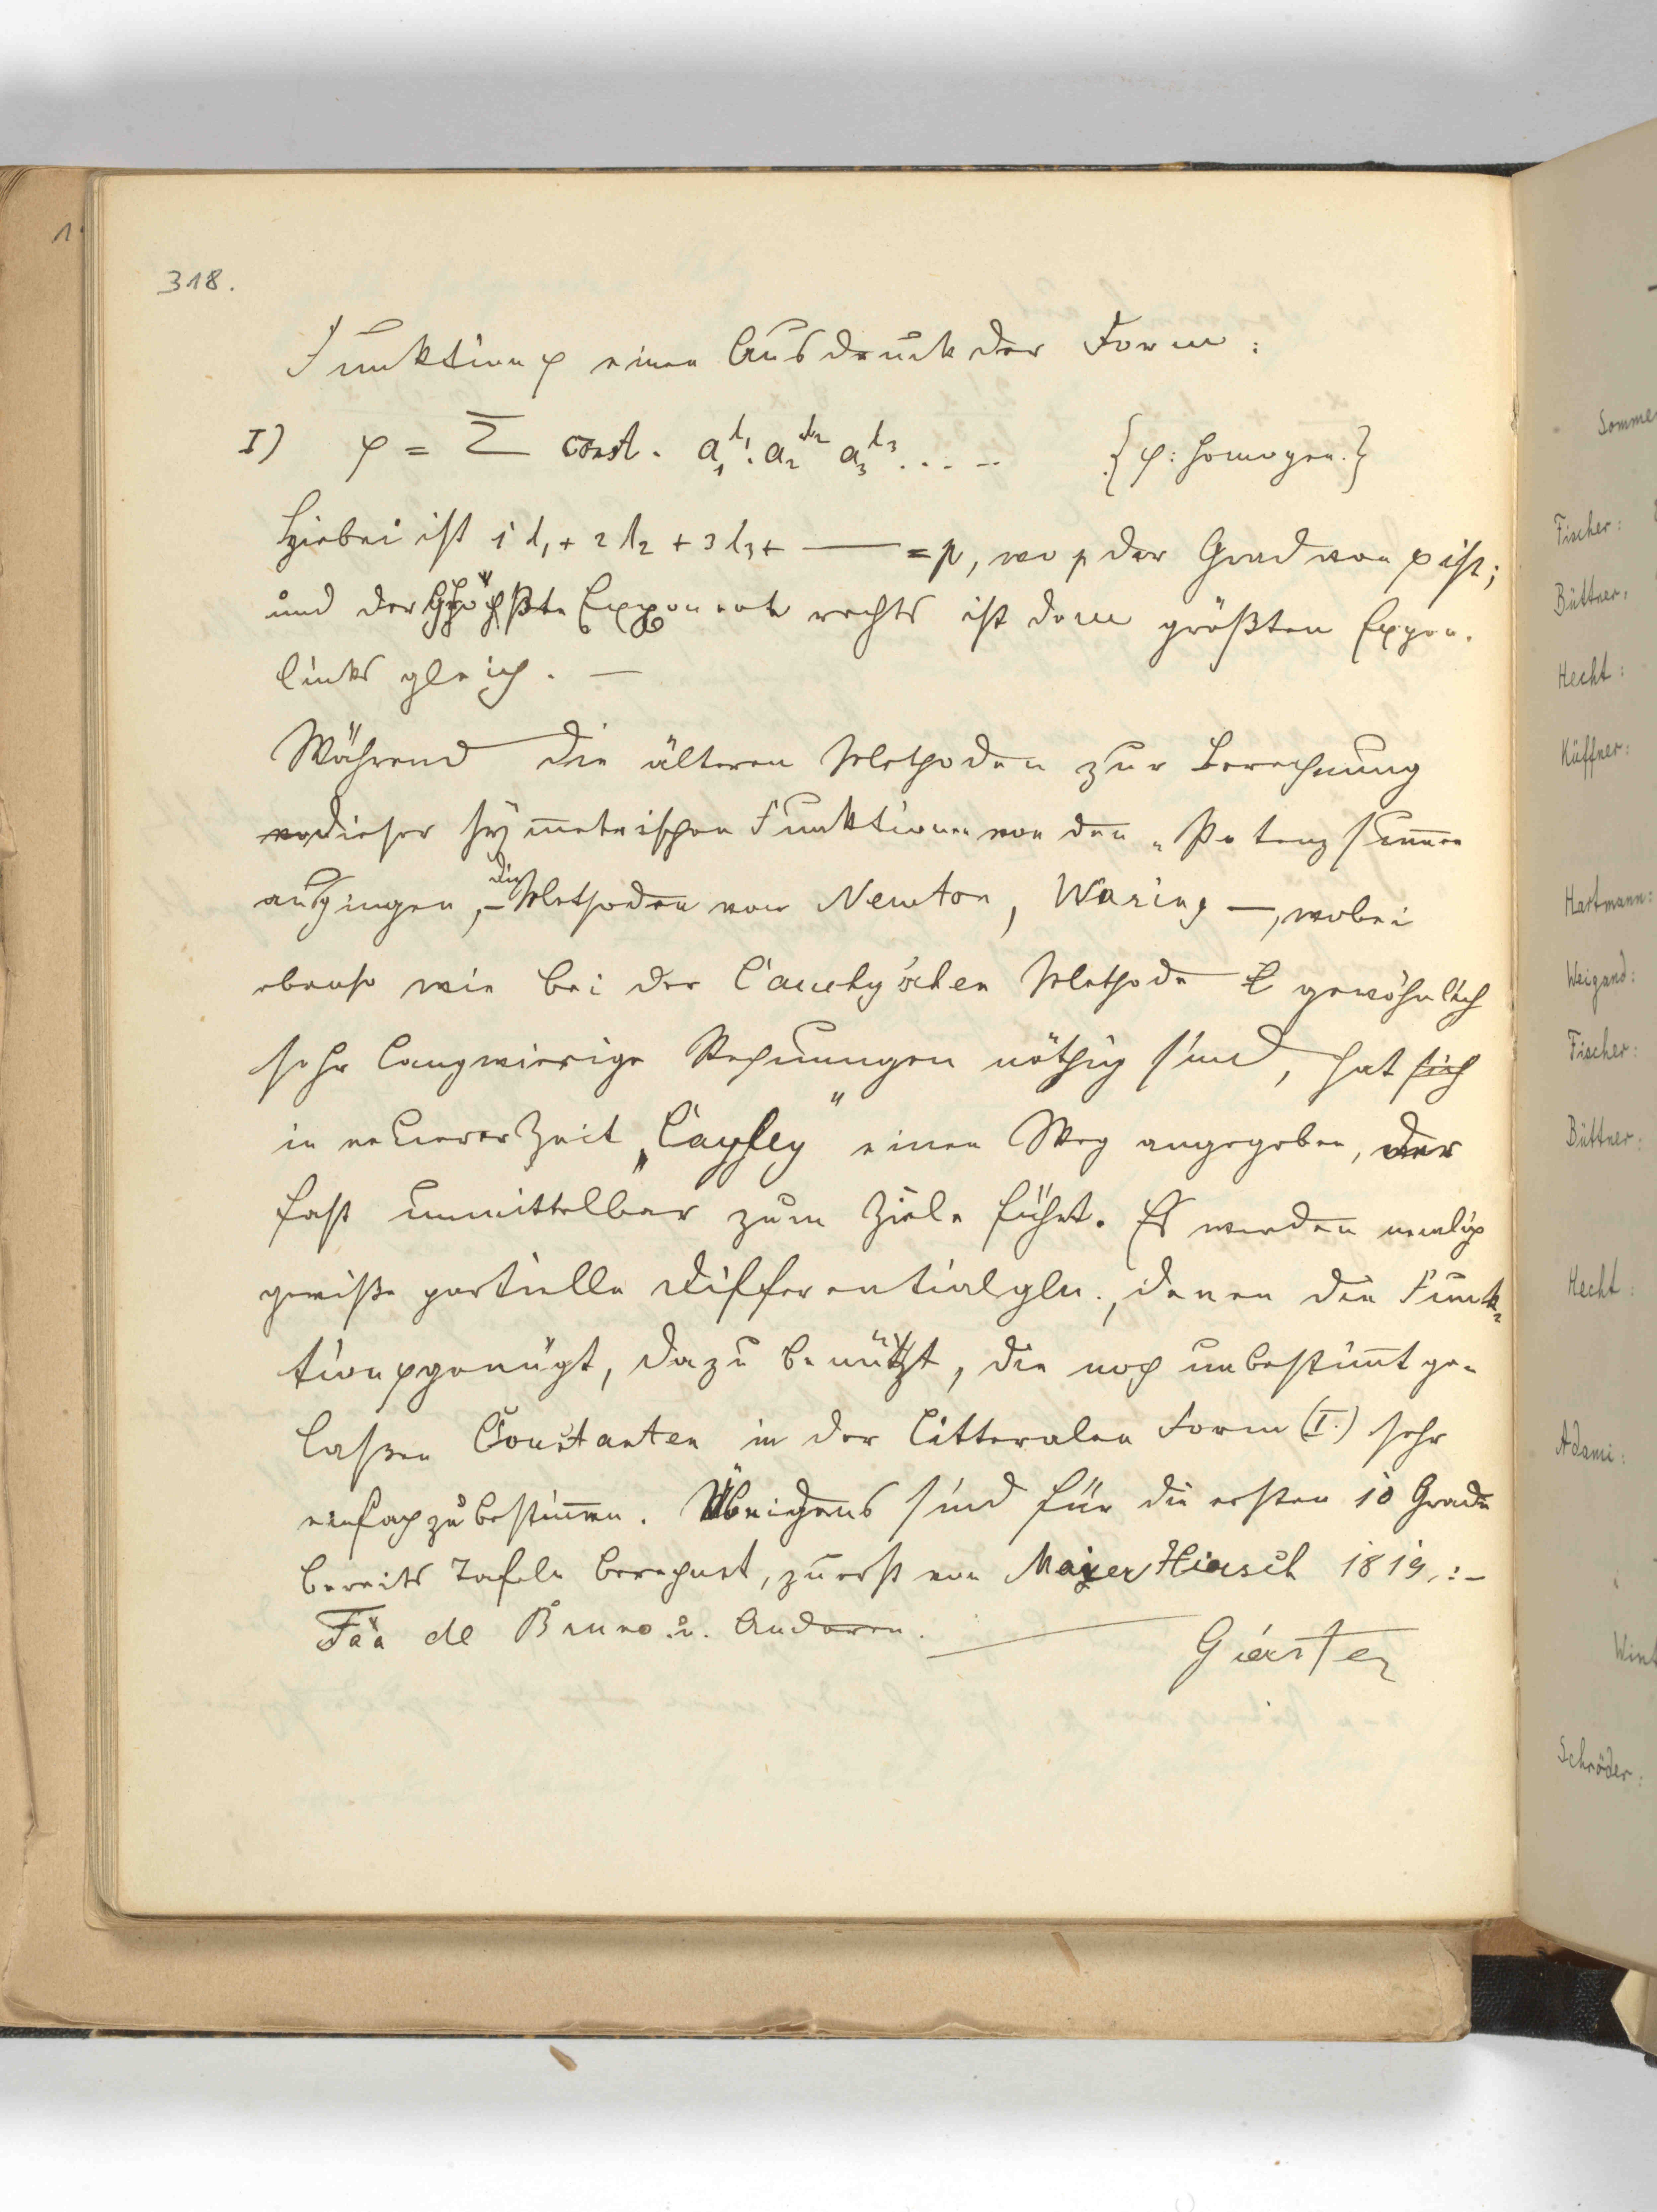 318.
Funktion φ einen Ausdruck der Form:
I) φ = Σ const. a₁^λ₁. a₂^λ₂ a₃^λ₃ ..... {φ: homogen.}
Hiebei ist 1λ₁ + 2λ₂ + 3λ₃ + — = p, wo p der Grad von φ ist;
und der höchste Exponent rechts ist dem größten Expon.
links gleich. —
Während die älteren Methoden zur Berechnung
dieser symmetrischen Funktionen von den „Potenzsummen
ausgingen, – die Methoden von Newton, Waring –, wobei
ebenso wie bei der Cauchy'schen Methode gewöhnlich
sehr langwierige Rechnungen nöthig sind, hat sich
in neuerer Zeit „Cayley" einen Weg angegeben, der
fast unmittelbar zum Ziele führt. Es werden nemlich
gewiße partielle Differentialgln., denen die Funk-
tion φ genügt, dazu benützt, die noch unbestimmt ge-
laßen Constanten in der litteralen Form (I.) sehr
einfach zu bestimmen. Übrigens sind für die ersten 10 Grade
bereits Tafeln berechnet, zuerst von Mayer Hirsch 1819, :–
Faà de Bruno u. Anderen. — Gierster
1
Somme
Fischer:
Büttner:
Hecht:
Küffner:
Hartmann:
Weigand:
Fischer:
Büttner:
Hecht:
Adami:
Wint
Schröder: